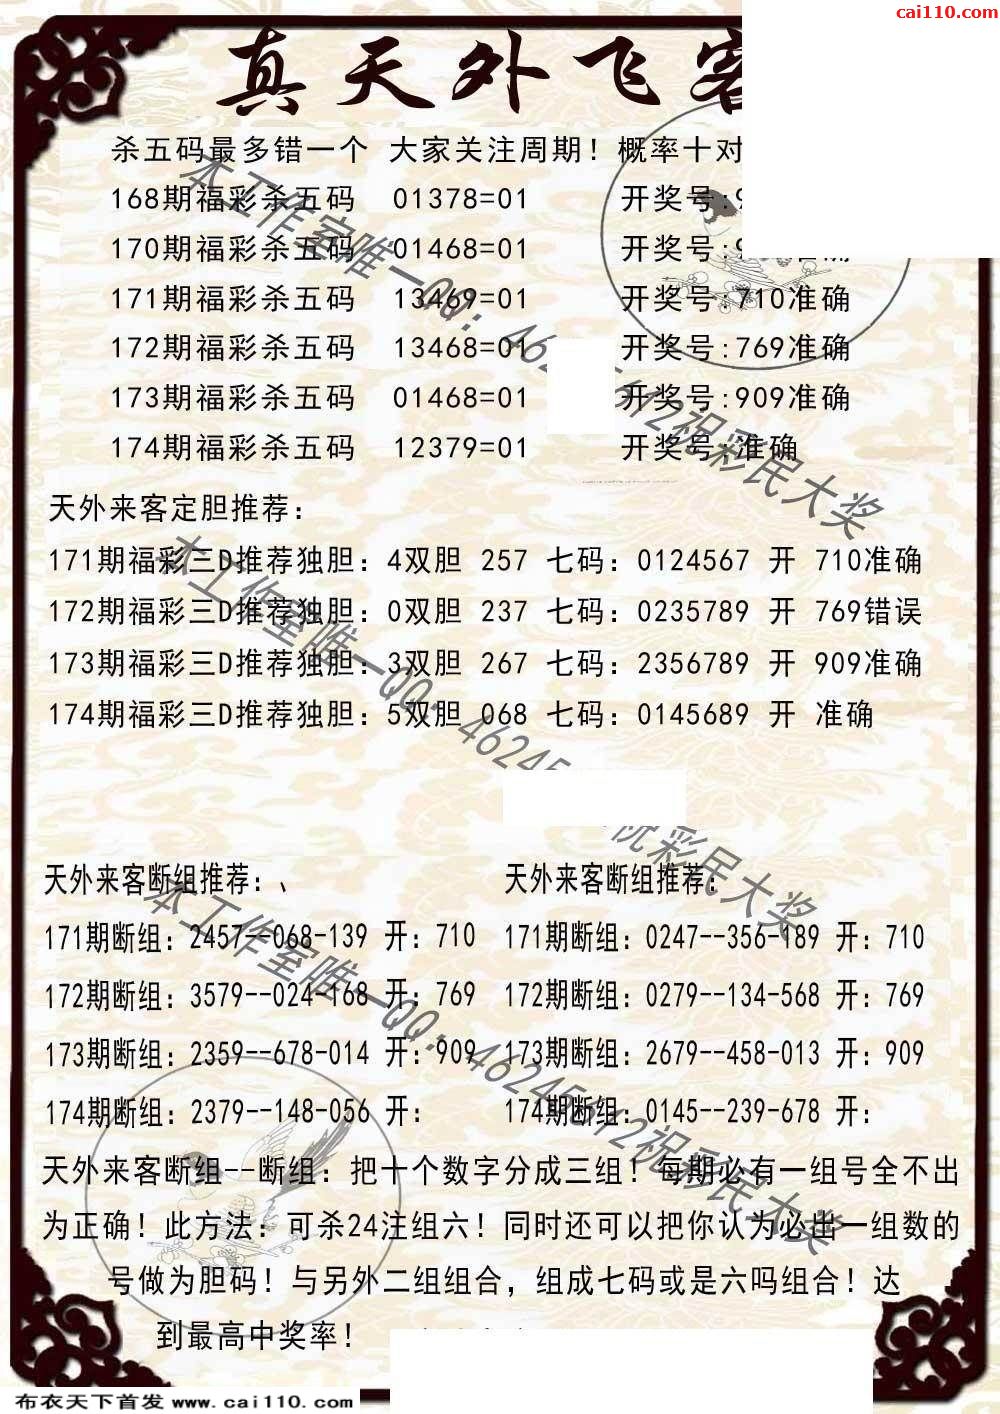 cai110.com
真天外飞客
杀五码最多错一个 大家关注周期！概率十对
168期福彩杀五码 01378=01 开奖号:9
170期福彩杀五码 01468=01 开奖号: 准确
171期福彩杀五码 13469=01 开奖号:710准确
172期福彩杀五码 13468=01 开奖号:769准确
173期福彩杀五码 01468=01 开奖号:909准确
174期福彩杀五码 12379=01 开奖号:准确
天外来客定胆推荐：
171期福彩三D推荐独胆：4双胆 257 七码：0124567 开 710准确
172期福彩三D推荐独胆：0双胆 237 七码：0235789 开 769错误
173期福彩三D推荐独胆：3双胆 267 七码：2356789 开 909准确
174期福彩三D推荐独胆：5双胆 068 七码：0145689 开 准确
天外来客断组推荐：、
171期断组：2457--068-139 开：710
172期断组：3579--024-168 开：769
173期断组：2359--678-014 开：909
174期断组：2379--148-056 开：
天外来客断组推荐：
171期断组：0247--356-189 开：710
172期断组：0279--134-568 开：769
173期断组：2679--458-013 开：909
174期断组：0145--239-678 开：
天外来客断组--断组：把十个数字分成三组！每期必有一组号全不出
为正确！此方法：可杀24注组六！同时还可以把你认为必出一组数的
号做为胆码！与另外二组组合，组成七码或是六吗组合！达
到最高中奖率！
本工作室唯一QQ：462 612祝彩民大奖
本工作室唯一QQ：46245 祝彩民大奖
本工作室唯一QQ：46245612祝彩民大奖
布衣天下首发 www.cai110.com